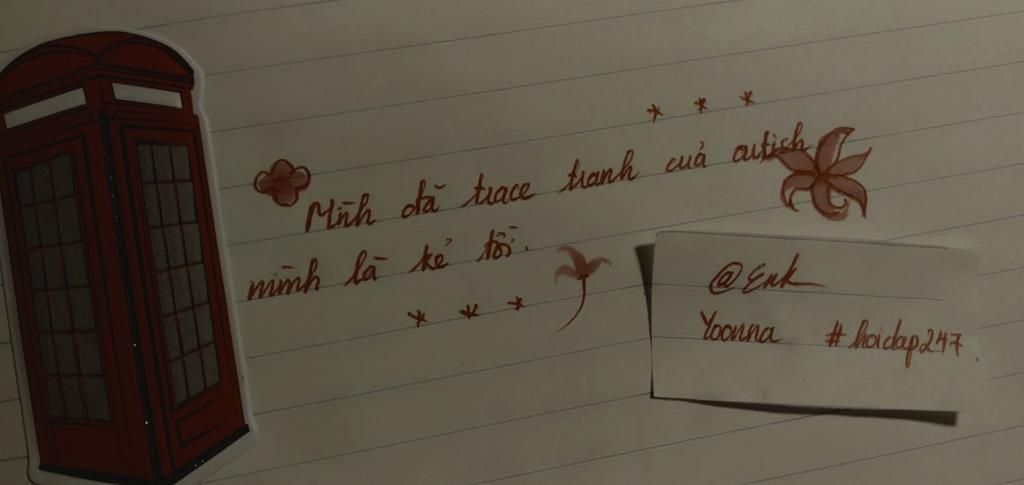 Mình đã trace tranh của artish
mình là kẻ tồi.
@Enk
Yoonna #hoidap247.